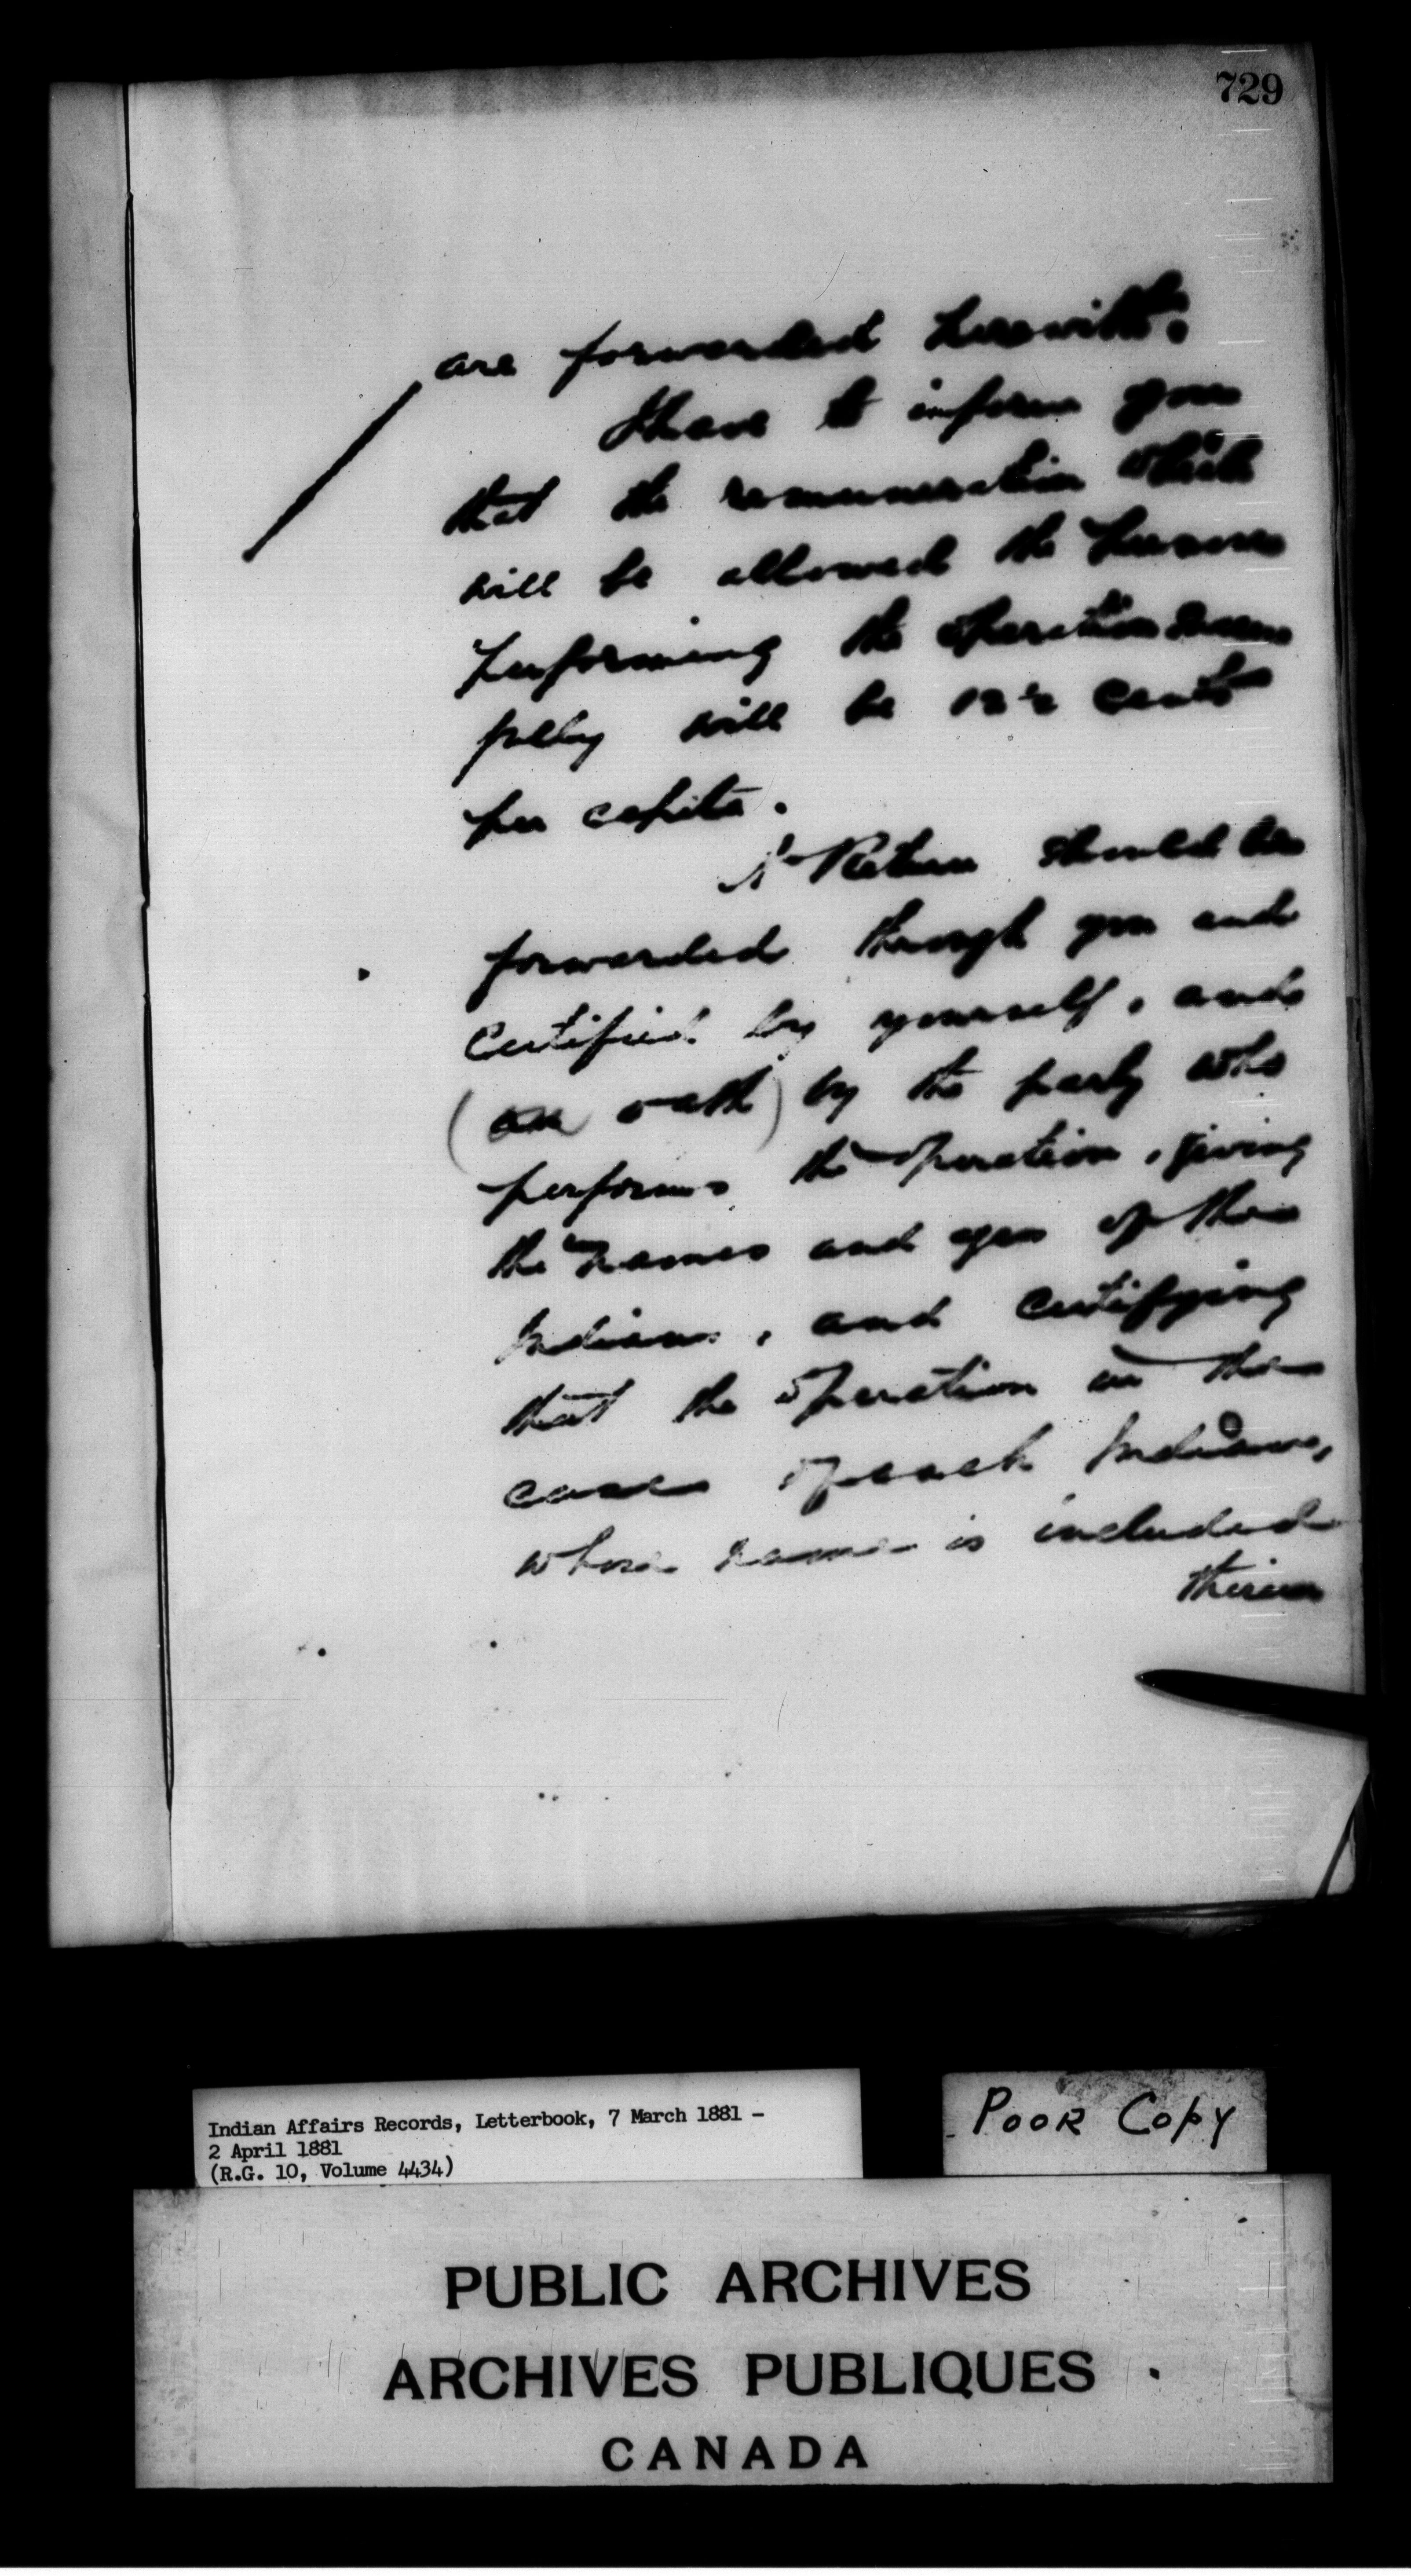 729
are forwarded herewith.
I have to inform you
that the remuneration which
will be allowed the person
performing the operation success
fully will be 12½ cents
per capita.
A Return should be
forwarded through you and
certified by yourself, and
(on oath) by the party who
performs the operation, giving
the names and ages of the
Indians, and certifying
that the operation in the
case of each Indian,
whose name is included
therein
Indian Affairs Records, Letterbook, 7 March 1881 -
2 April 1881
(R.G. 10, Volume 4434)
POOR COPY
PUBLIC ARCHIVES
ARCHIVES PUBLIQUES
CANADA